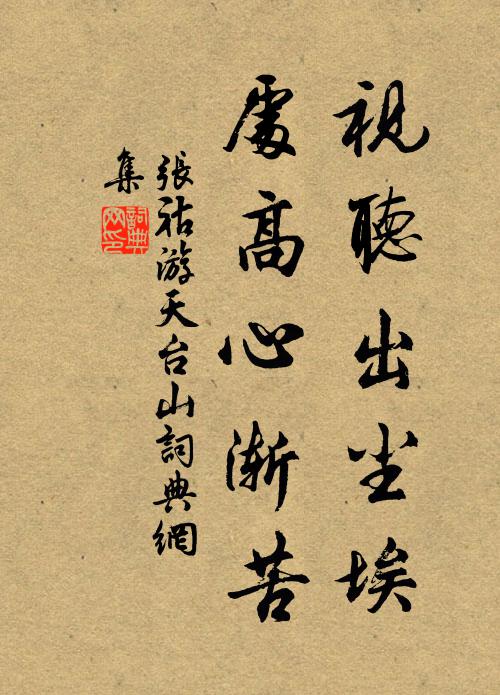 視聽出尘埃
處高心渐苦
張祜游天台山詞典網
集
詞典
网印